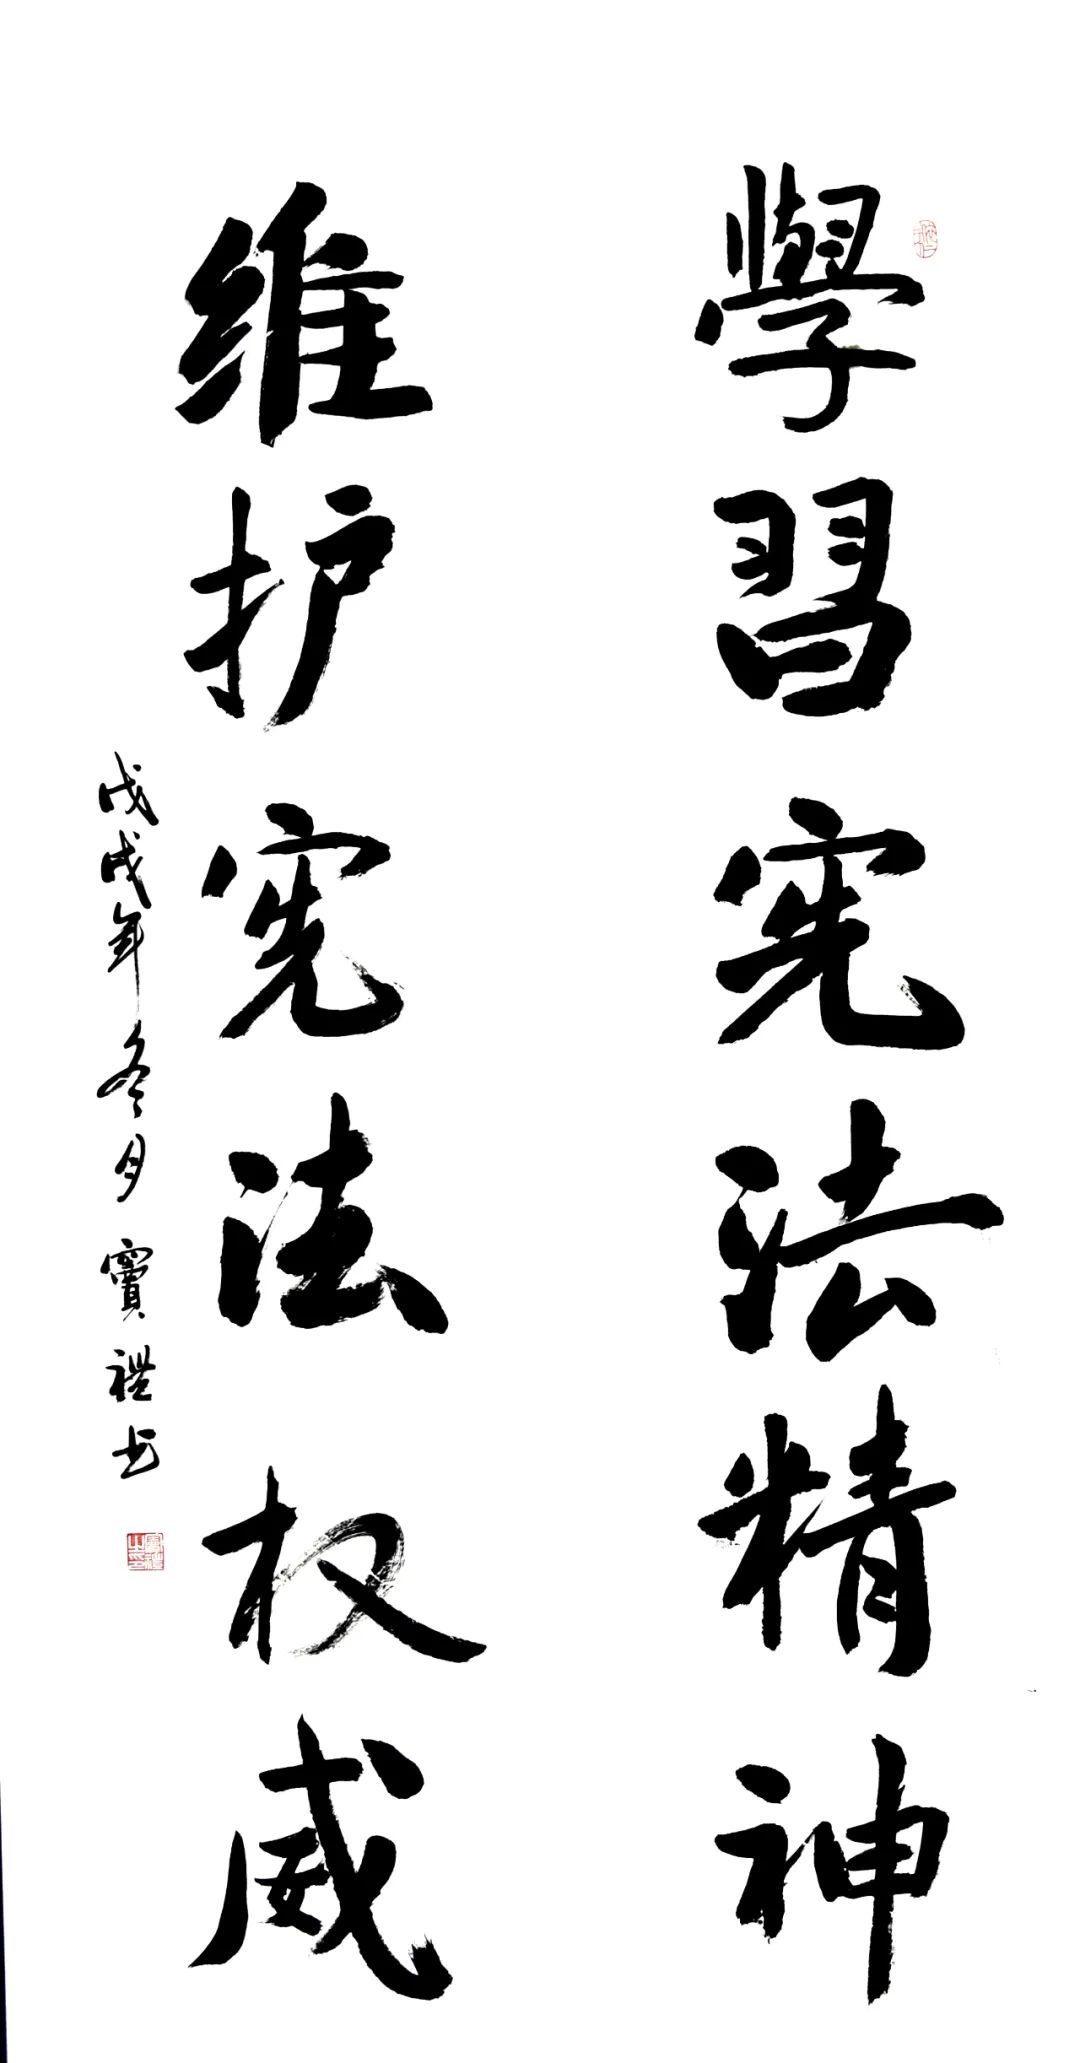 學習宪法精神
维护宪法权威
戊戌年冬月窦禮书